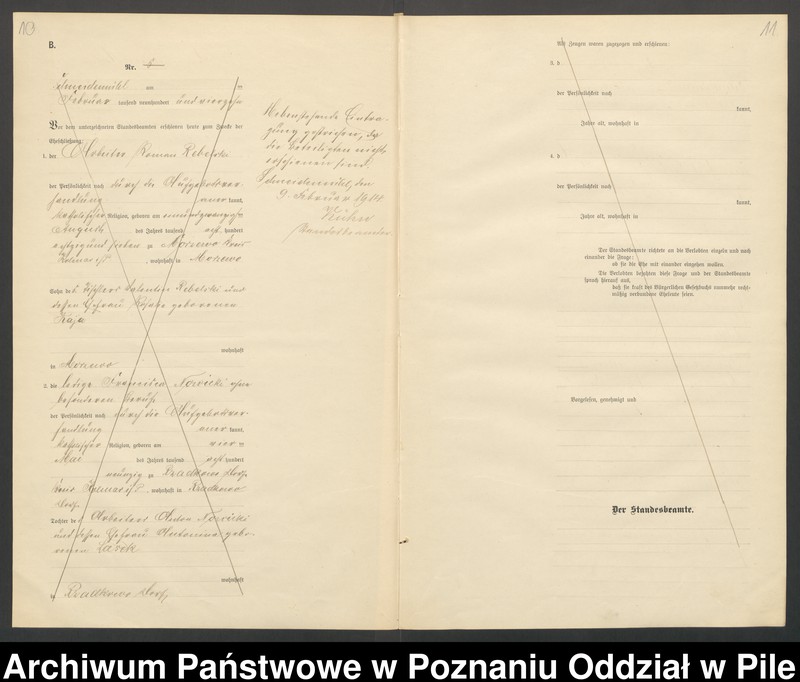 10
B.
Nr.
Schneidemühl am
Februar tausend neunhundert und vierzehn
Vor dem unterzeichneten Standesbeamten erschienen heute zum Zwecke der
Eheschließung:
1. der Arbeiter Roman
der Persönlichkeit nach durch die Aufgebotsver-
handlung aner kannt,
katholischer Religion, geboren am
August des Jahres tausend acht hundert
achtzig und sieben zu Morzewo Kreis
Kolmar i/P, wohnhaft in Morzewo
Sohn des Tischlers Valentin und
dessen Ehefrau geborenen
wohnhaft
in Morzewo
2. die ledige Nowicki ohne
besonderen Beruf
der Persönlichkeit nach durch die Aufgebotsver-
handlung aner kannt,
katholischer Religion, geboren am vier
Mai des Jahres tausend acht hundert
neunzig zu Rzadkowo Dorf
Kreis Kolmar i/P, wohnhaft in Rzadkowo
Dorf
Tochter des Arbeiters Anton Nowicki
und dessen Ehefrau Antonina gebo-
renen
wohnhaft
in Rzadkowo Dorf,
Nebenstehende Eintra-
gung gestrichen, da
die Beteiligten nicht
erschienen sind.
Schneidemühl, den
9. Februar 1914
Standesbeamter
11
Als Zeugen waren zugezogen und erschienen:
3. d
der Persönlichkeit nach
kannt,
Jahre alt, wohnhaft in
4. d
der Persönlichkeit nach
kannt,
Jahre alt, wohnhaft in
Der Standesbeamte richtete an die Verlobten einzeln und nach
einander die Frage:
ob sie die Ehe mit einander eingehen wollen.
Die Verlobten bejahten diese Frage und der Standesbeamte
sprach hierauf aus,
daß sie kraft des Bürgerlichen Gesetzbuchs nunmehr recht-
mäßig verbundene Eheleute seien.
Vorgelesen, genehmigt und
Der Standesbeamte.
Archiwum Państwowe w Poznaniu Oddział w Pile